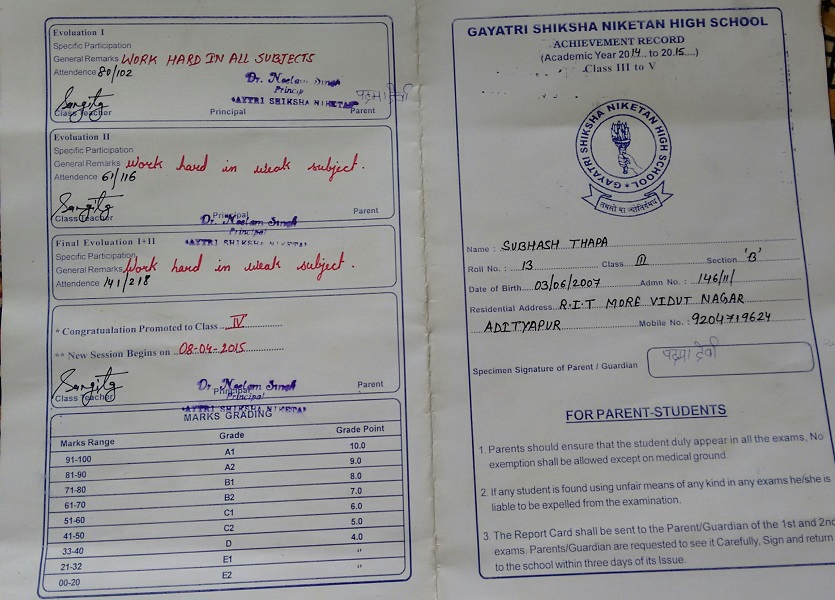 Evaluation I
Specific Participation
General Remarks WORK HARD IN ALL SUBJECTS
Attendence 80/102
Dr. Neelam Singh
Principal
GAYTRI SHIKSHA NIKETAN
पदमा देवी
Class Teacher Principal Parent
Evaluation II
Specific Participation
General Remarks Work hard in weak subject.
Attendence 61/116
Class Teacher Principal Parent
Dr. Neelam Singh
Principal
GAYTRI SHIKSHA NIKETAN
Final Evaluation I+II
Specific Participation
General Remarks Work hard in weak subject.
Attendence 141/218
* Congratualation Promoted to Class IV
** New Session Begins on 08-04-2015
Dr. Neelam Singh
Class Teacher Principal Parent
Principal
GAYTRI SHIKSHA NIKETAN
MARKS GRADING
Marks Range Grade Grade Point
91-100 A1 10.0
81-90 A2 9.0
71-80 B1 8.0
61-70 B2 7.0
51-60 C1 6.0
41-50 C2 5.0
33-40 D 4.0
21-32 E1 "
00-20 E2 "
GAYATRI SHIKSHA NIKETAN HIGH SCHOOL
ACHIEVEMENT RECORD
(Academic Year 2014.. to 2015....)
Class III to V
GAYATRI SHIKSHA NIKETAN HIGH SCHOOL
तमसो मा ज्योतिर्गमय
Name : SUBHASH THAPA
Roll No. : 13 Class III Section 'B'
Date of Birth 03/06/2007 Admn No. : 146/11/
Residential Address R.I.T MORE VIDUT NAGAR
ADITYAPUR Mobile No. : 9204719624
Specimen Signature of Parent / Guardian पदमा देवी
FOR PARENT-STUDENTS
1. Parents should ensure that the student duly appear in all the exams, No
exemption shall be allowed except on medical ground.
2. If any student is found using unfair means of any kind in any exams he/she is
liable to be expelled from the examination.
3. The Report Card shall be sent to the Parent/Guardian of the 1st and 2nd
exams. Parents/Guardian are requested to see it Carefully, Sign and return
to the school within three days of its Issue.